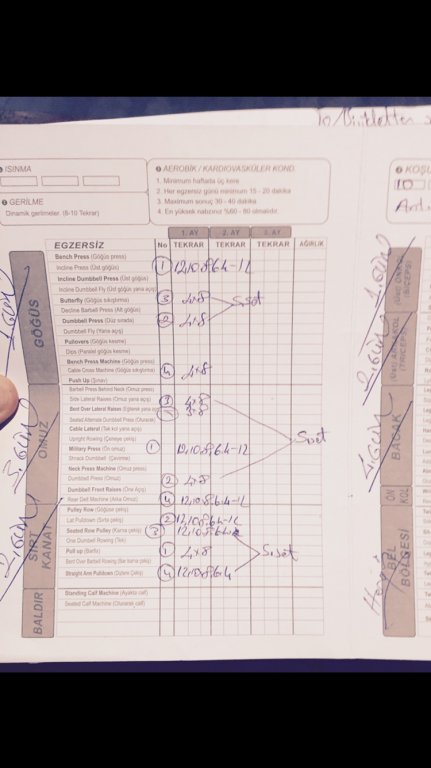 ISINMA
GERİLME
Dinamik gerilmeler. (8-10 Tekrar)
AEROBİK / KARDİOVASKÜLER KOND.
1. Minimum haftada üç kere
2. Her egzersiz günü minimum 15 - 20 dakika
3. Maximum sonuç 30 - 40 dakika
4. En yüksek nabzınız %60 - 80 olmalıdır.
KOŞU
10
1. AY 2. AY 3. AY
EGZERSİZ No TEKRAR TEKRAR TEKRAR AĞIRLIK
GÖĞÜS
Bench Press (Göğüs press)
Incline Press (Üst göğüs) 1 12,10,8,6,4-12
Incline Dumbbell Press (Üst göğüs)
Incline Dumbell Fly (Üst göğüs yana açış)
Butterfly (Göğüs sıkıştırma) 3 4x8 S.set
Decline Barbell Press (Alt göğüs)
Dumbell Press (Düz sırada) 2 4x8
Dumbell Fly (Yana açış)
Pullovers (Göğüs kesme)
Dips (Paralel göğüs kesme)
Bench Press Machine (Göğüs press)
Cable Cross Machine (Göğüs sıkıştırma) 4 4x8
Push Up (Şınav)
OMUZ
Barbell Press Behind Neck (Omuz press)
Side Lateral Raises (Omuz yana açış) 3 4x8
Bent Over Lateral Raises (Eğilerek yana açış)
Seated Alternate Dumbell Press (Oturarak)
Cable Lateral (Tek kol yana açış)
Upright Rowing (Çeneye çekiş)
Military Press (Ön omuz) 1 12,10,8,6,4-12
S.set
Shrack Dumbbell (Çevirme)
Neck Press Machine (Omuz press)
Dumbell Press (Omuz) 2 4x8
Dumbbell Front Raises (Öne Açış)
Rear Delt Machine (Arka Omuz) 4 12,10,8,6,4-12
SIRT KANAT
Pulley Row (Göğüse çekiş)
Lat Pulldown (Sırta çekiş) 2 12,10,8,6,4-12
Seated Row Pulley (Karına çekiş) 3
One Dumbell Rowing (Tek)
Pull up (Barfix) 1 4x8 S.set
Bent Over Barbell Rowing
Straight Arm Pulldown 4 12,10,8,6,4
BALDIR
Standing Calf Machine (Ayakta calf)
Seated Calf Machine (Oturarak calf)
BACAK
ÖN KOL
BEL BÖLGESİ